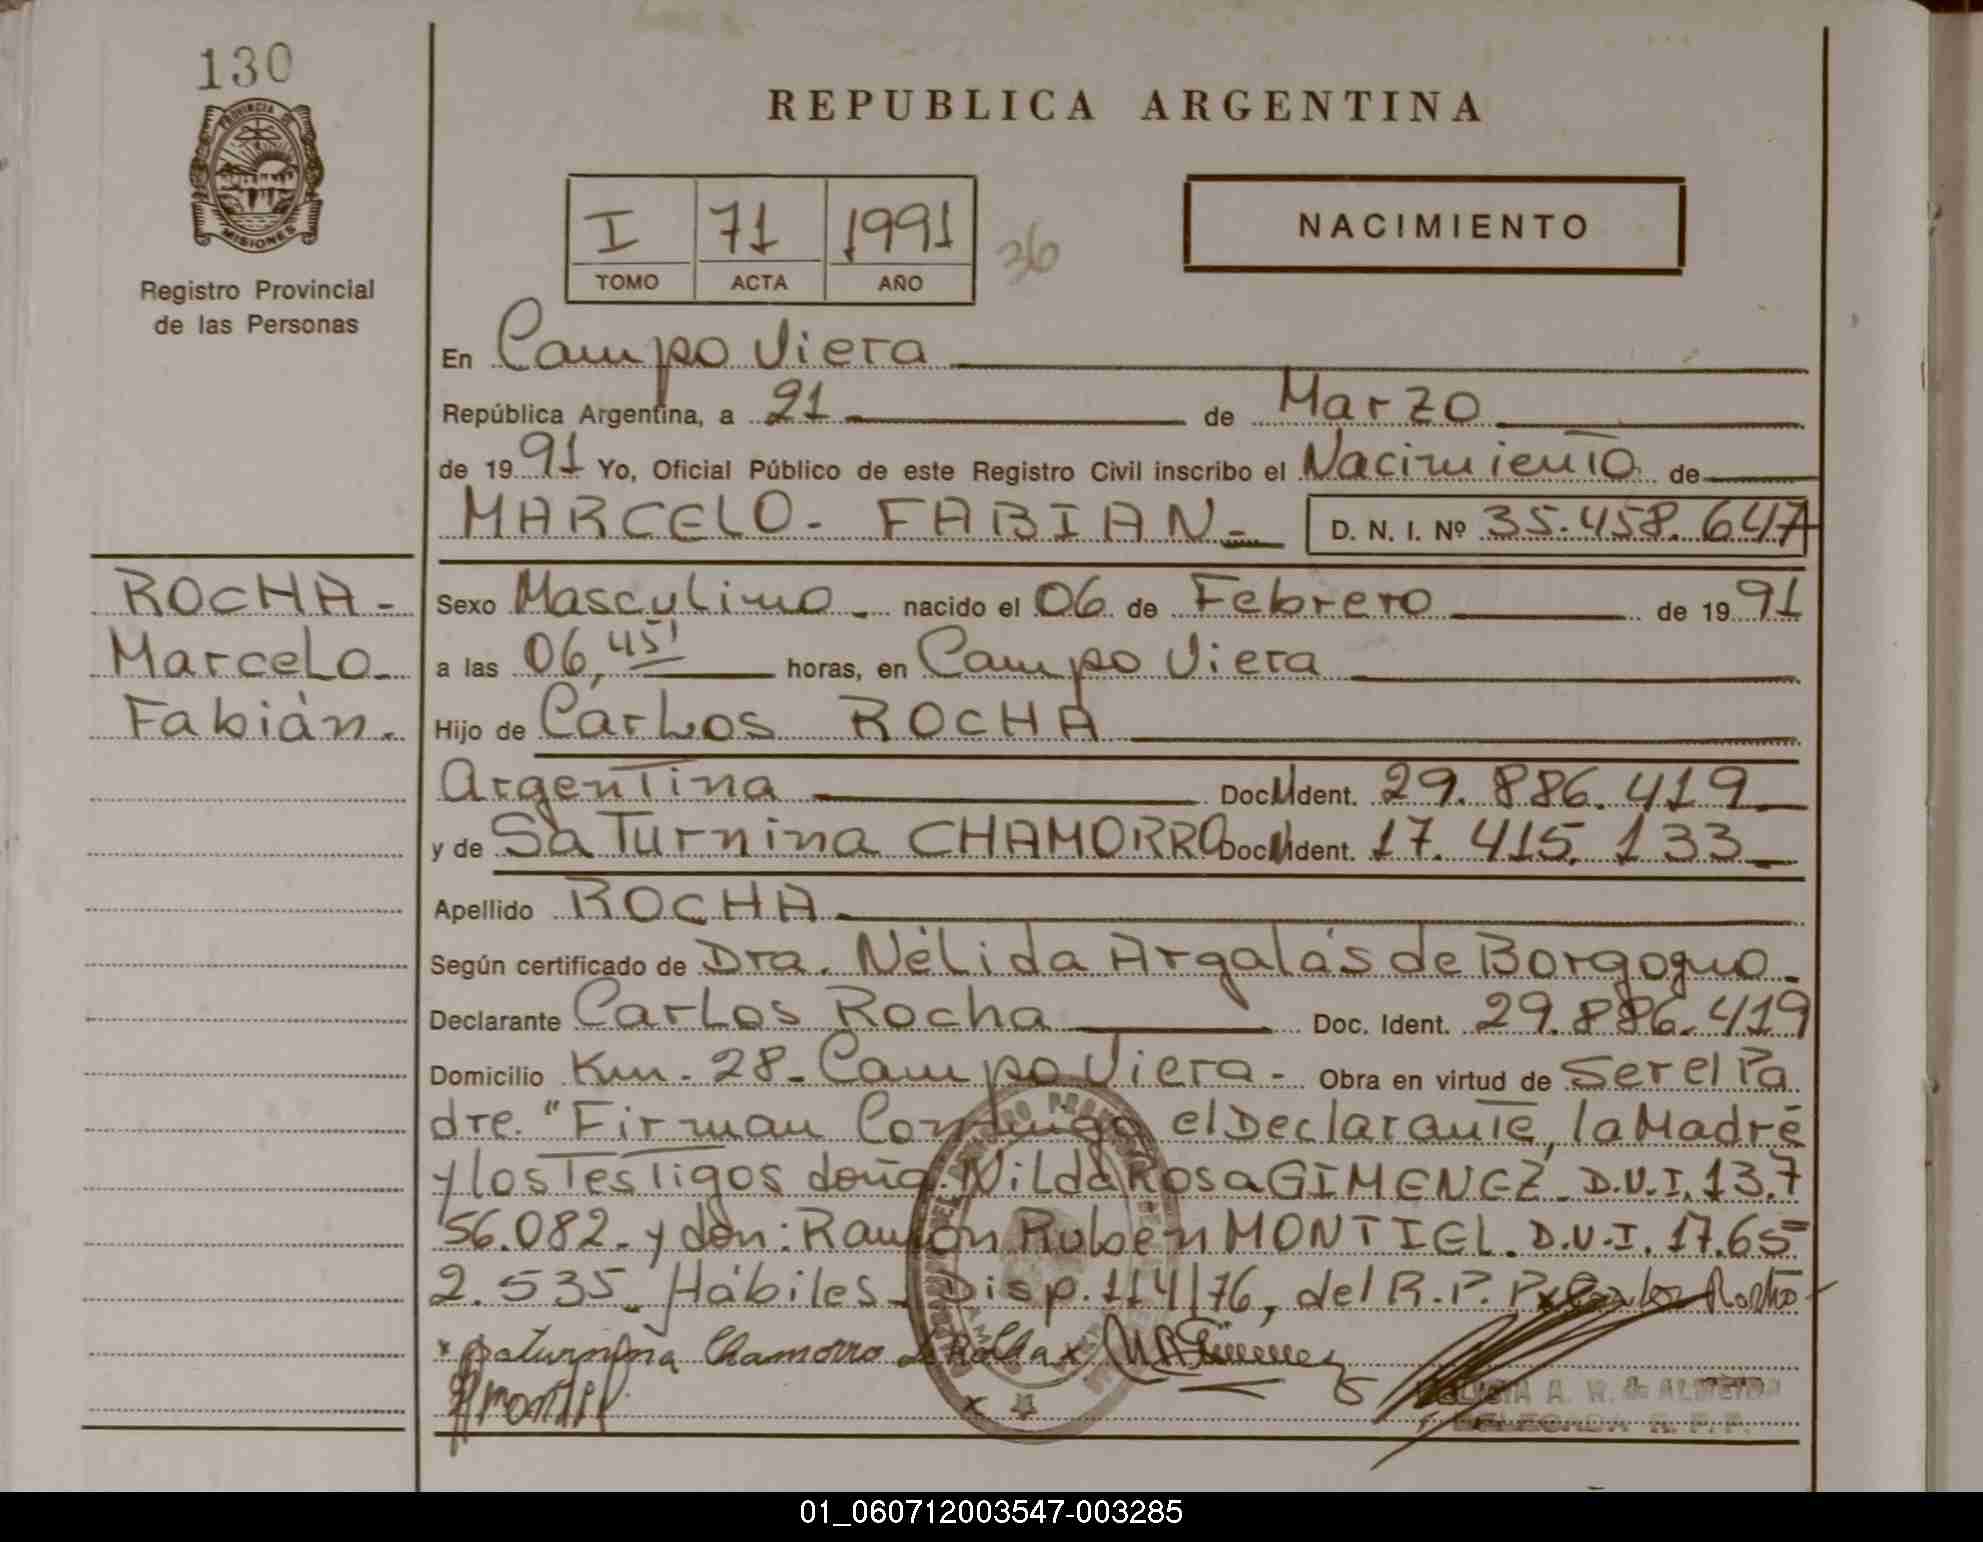 130
PROVINCIA DE
MISIONES
Registro Provincial
de las Personas
REPUBLICA ARGENTINA
I 71 1991 36
TOMO ACTA AÑO
NACIMIENTO
En Campo Viera
República Argentina, a 21 de Marzo
de 1991 Yo, Oficial Público de este Registro Civil inscribo el Nacimiento de
MARCELO - FABIAN - D. N. I. Nº 35.458.647
ROCHA -
Marcelo
Fabián.
Sexo Masculino nacido el 06 de Febrero de 1991
a las 06,45' horas, en Campo Viera
Hijo de Carlos ROCHA
Argentina Doc. Ident. 29.886.419
y de Saturnina CHAMORRO Doc. Ident. 17.415.133
Apellido ROCHA
Según certificado de Dra. Nélida Argalás de Borgogno
Declarante Carlos Rocha Doc. Ident. 29.886.419
Domicilio Km. 28 - Campo Viera - Obra en virtud de Ser el Pa
dre. "Firman Conmigo el Declarante, la Madre
y los Testigos doña: Nilda Rosa GIMENEZ D.N.I. 13.7
56.082 - y don: Ramón Rubén MONTIEL. D.N.I. 17.65
2.535. Hábiles - Disp. 114/76, del R.P.P. x Carlos Rocha
x Saturnina Chamorro de Rocha x N R Gimenez
Montiel
A. W. de ALMEIDA
DELEGADA R. P. P.
01_060712003547-003285